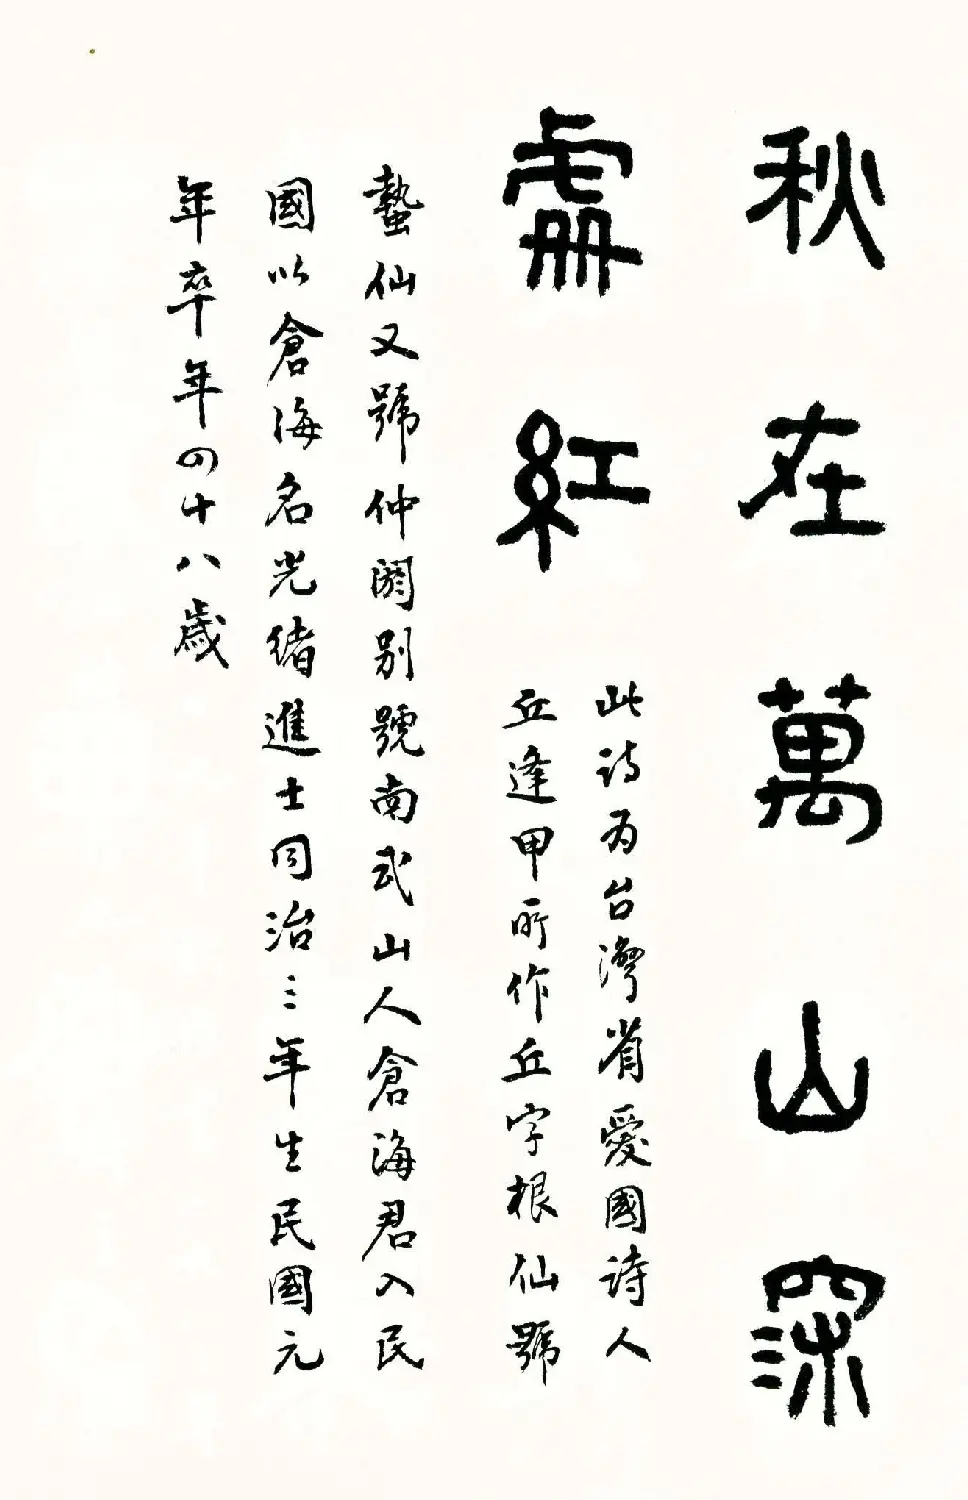 秋在萬山深
處紅
此诗为台灣省愛國詩人
丘逢甲所作丘字根仙號
蟄仙又號仲閼别號南武山人倉海君入民
國以倉海名光緒進士同治三年生民國元
年卒年四十八歲